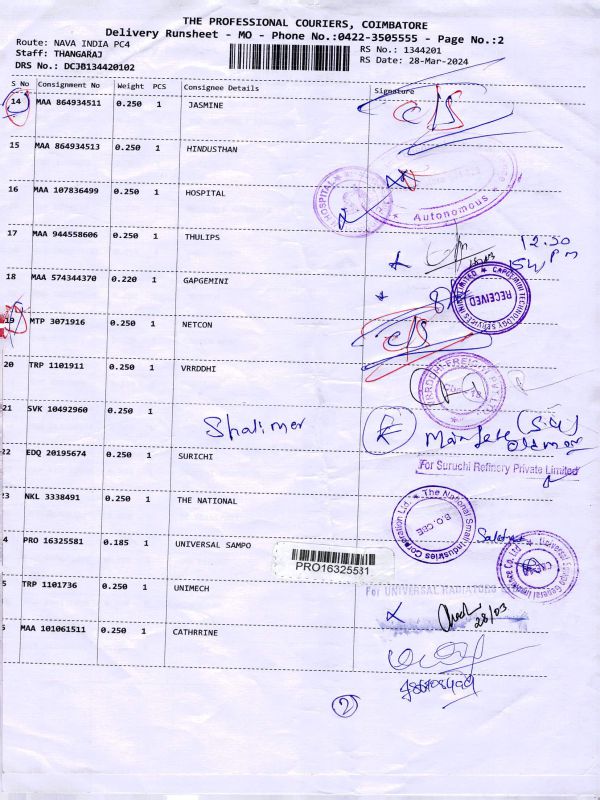 THE PROFESSIONAL COURIERS, COIMBATORE
Delivery Runsheet - MO - Phone No.:0422-3505555 - Page No.:2
Route: NAVA INDIA PC4
RS No.: 1344201
Staff: THANGARAJ
RS Date: 28-Mar-2024
DRS No.: DCJB134420102
S No Consignment No Weight PCS Consignee Details Signature
14 MAA 864934511 0.250 1 JASMINE
C/S
15 MAA 864934513 0.250 1 HINDUSTHAN
16 MAA 107836499 0.250 1 HOSPITAL
HOSPITAL
Autonomous
17 MAA 944558606 0.250 1 THULIPS
12.30 PM
18 MAA 574344370 0.220 1 GAPGEMINI
CAPGEMINI TECHNOLOGY SERVICES INDIA LIMITED
RECEIVED
19 MTP 3071916 0.250 1 NETCON
C/S
20 TRP 1101911 0.250 1 VRRDDHI
21 SVK 10492960 0.250 1
Shalimer
22 EDQ 20195674 0.250 1 SURICHI
For Suruchi Refinery Private Limited
23 NKL 3338491 0.250 1 THE NATIONAL
The National Small Industries Corporation Ltd.
B.O. CBE
4 PRO 16325581 0.185 1 UNIVERSAL SAMPO
PRO16325531
Universal Sompo General Insurance Co. Ltd
5 TRP 1101736 0.250 1 UNIMECH
For UNIVERSAL RADIATORS
28/03
MAA 101061511 0.250 1 CATHRRINE
2